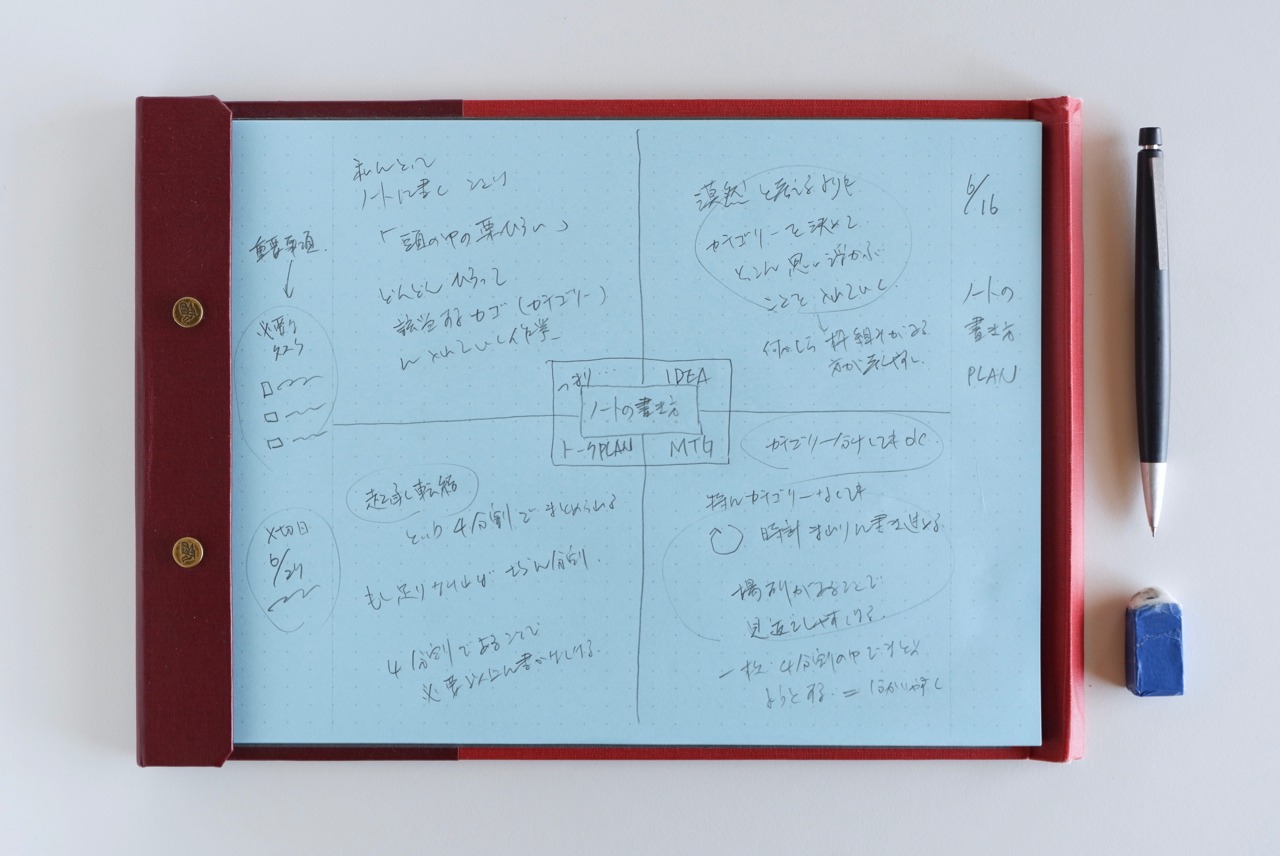 重要事項
必要な
タスク
〆切日
6/24
私にとって
ノートに書くことは
「頭の中の栗ひろい」
どんどんひろって
該当するカゴ(カテゴリー)
に入れていく作業
漠然と考えるよりも
カテゴリーを決めて
どんどん思い浮かぶ
ことを入れていく
何かしら枠組みがある
方が楽しやすい
つまり…
IDEA
ノートの書き方
トークPLAN
MTG
起承転結
という4分割でまとめられる
もし足りなければさらに分割
4分割であることで
必要以上に書かなくなる
カテゴリー分けしてもok
特にカテゴリーなくても
時計まわりに書き進める
場所があることで
見返しやすくなる
一枚4分割の中でまとめ
ようとする = 分かりやすく
6/16
ノートの
書き方
PLAN